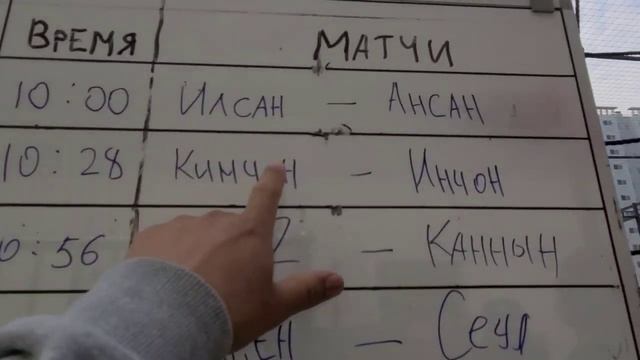 ВРЕМЯ МАТЧИ
10:00 ИЛСАН – АНСАН
10:28 – ИНЧОН
– КАННЫН
– СЕУЛ